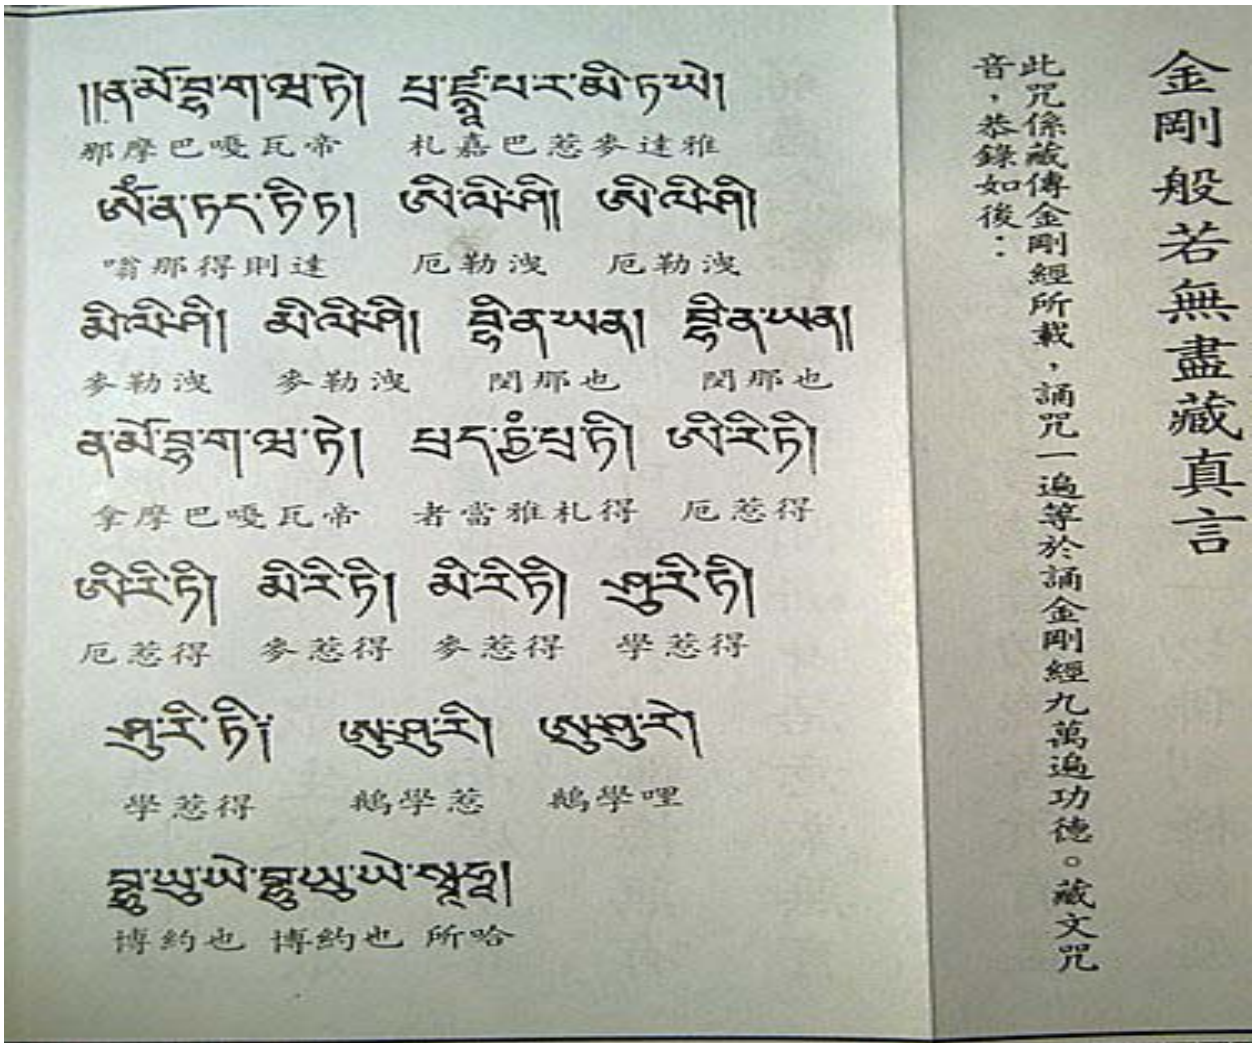 金剛般若無盡藏真言
此咒係藏傳金剛經所載，誦咒一遍等於誦金剛經九萬遍功德。藏文咒
音，恭錄如後：
༎ན་མོ་བྷ་ག་ཝ་ཏེ། པྲ་ཛྙཱ་པ་ར་མི་ཏ་ཡེ།
那摩巴嘎瓦帝 札嘉巴惹麥達雅
ༀ་ན་ཏད་ཏི་ཏ། ཨི་ལི་ཤི། ཨི་ལི་ཤི།
嗡那得則達 厄勒洩 厄勒洩
མི་ལི་ཤི། མི་ལི་ཤི། བྷི་ན་ཡན། བྷི་ན་ཡན།
麥勒洩 麥勒洩 閔那也 閔那也
ན་མོ་བྷ་ག་ཝ་ཏེ། པྲད་ཏྱཾ་པྲ་ཏི། ཨི་རི་ཏི།
拿摩巴嘎瓦帝 者當雅札得 厄惹得
ཨི་རི་ཏི། མི་རི་ཏི། མི་རི་ཏི། ཤུ་རི་ཏི།
厄惹得 麥惹得 麥惹得 學惹得
ཤུ་རི་ཏི། ཨུ་ཤུ་རི། ཨུ་ཤུ་རེ།
學惹得 鵝學惹 鵝學哩
བྷུ་ཡུ་ཡེ་བྷུ་ཡུ་ཡེ་སྭཱ་ཧཱ།
博約也 博約也 所哈